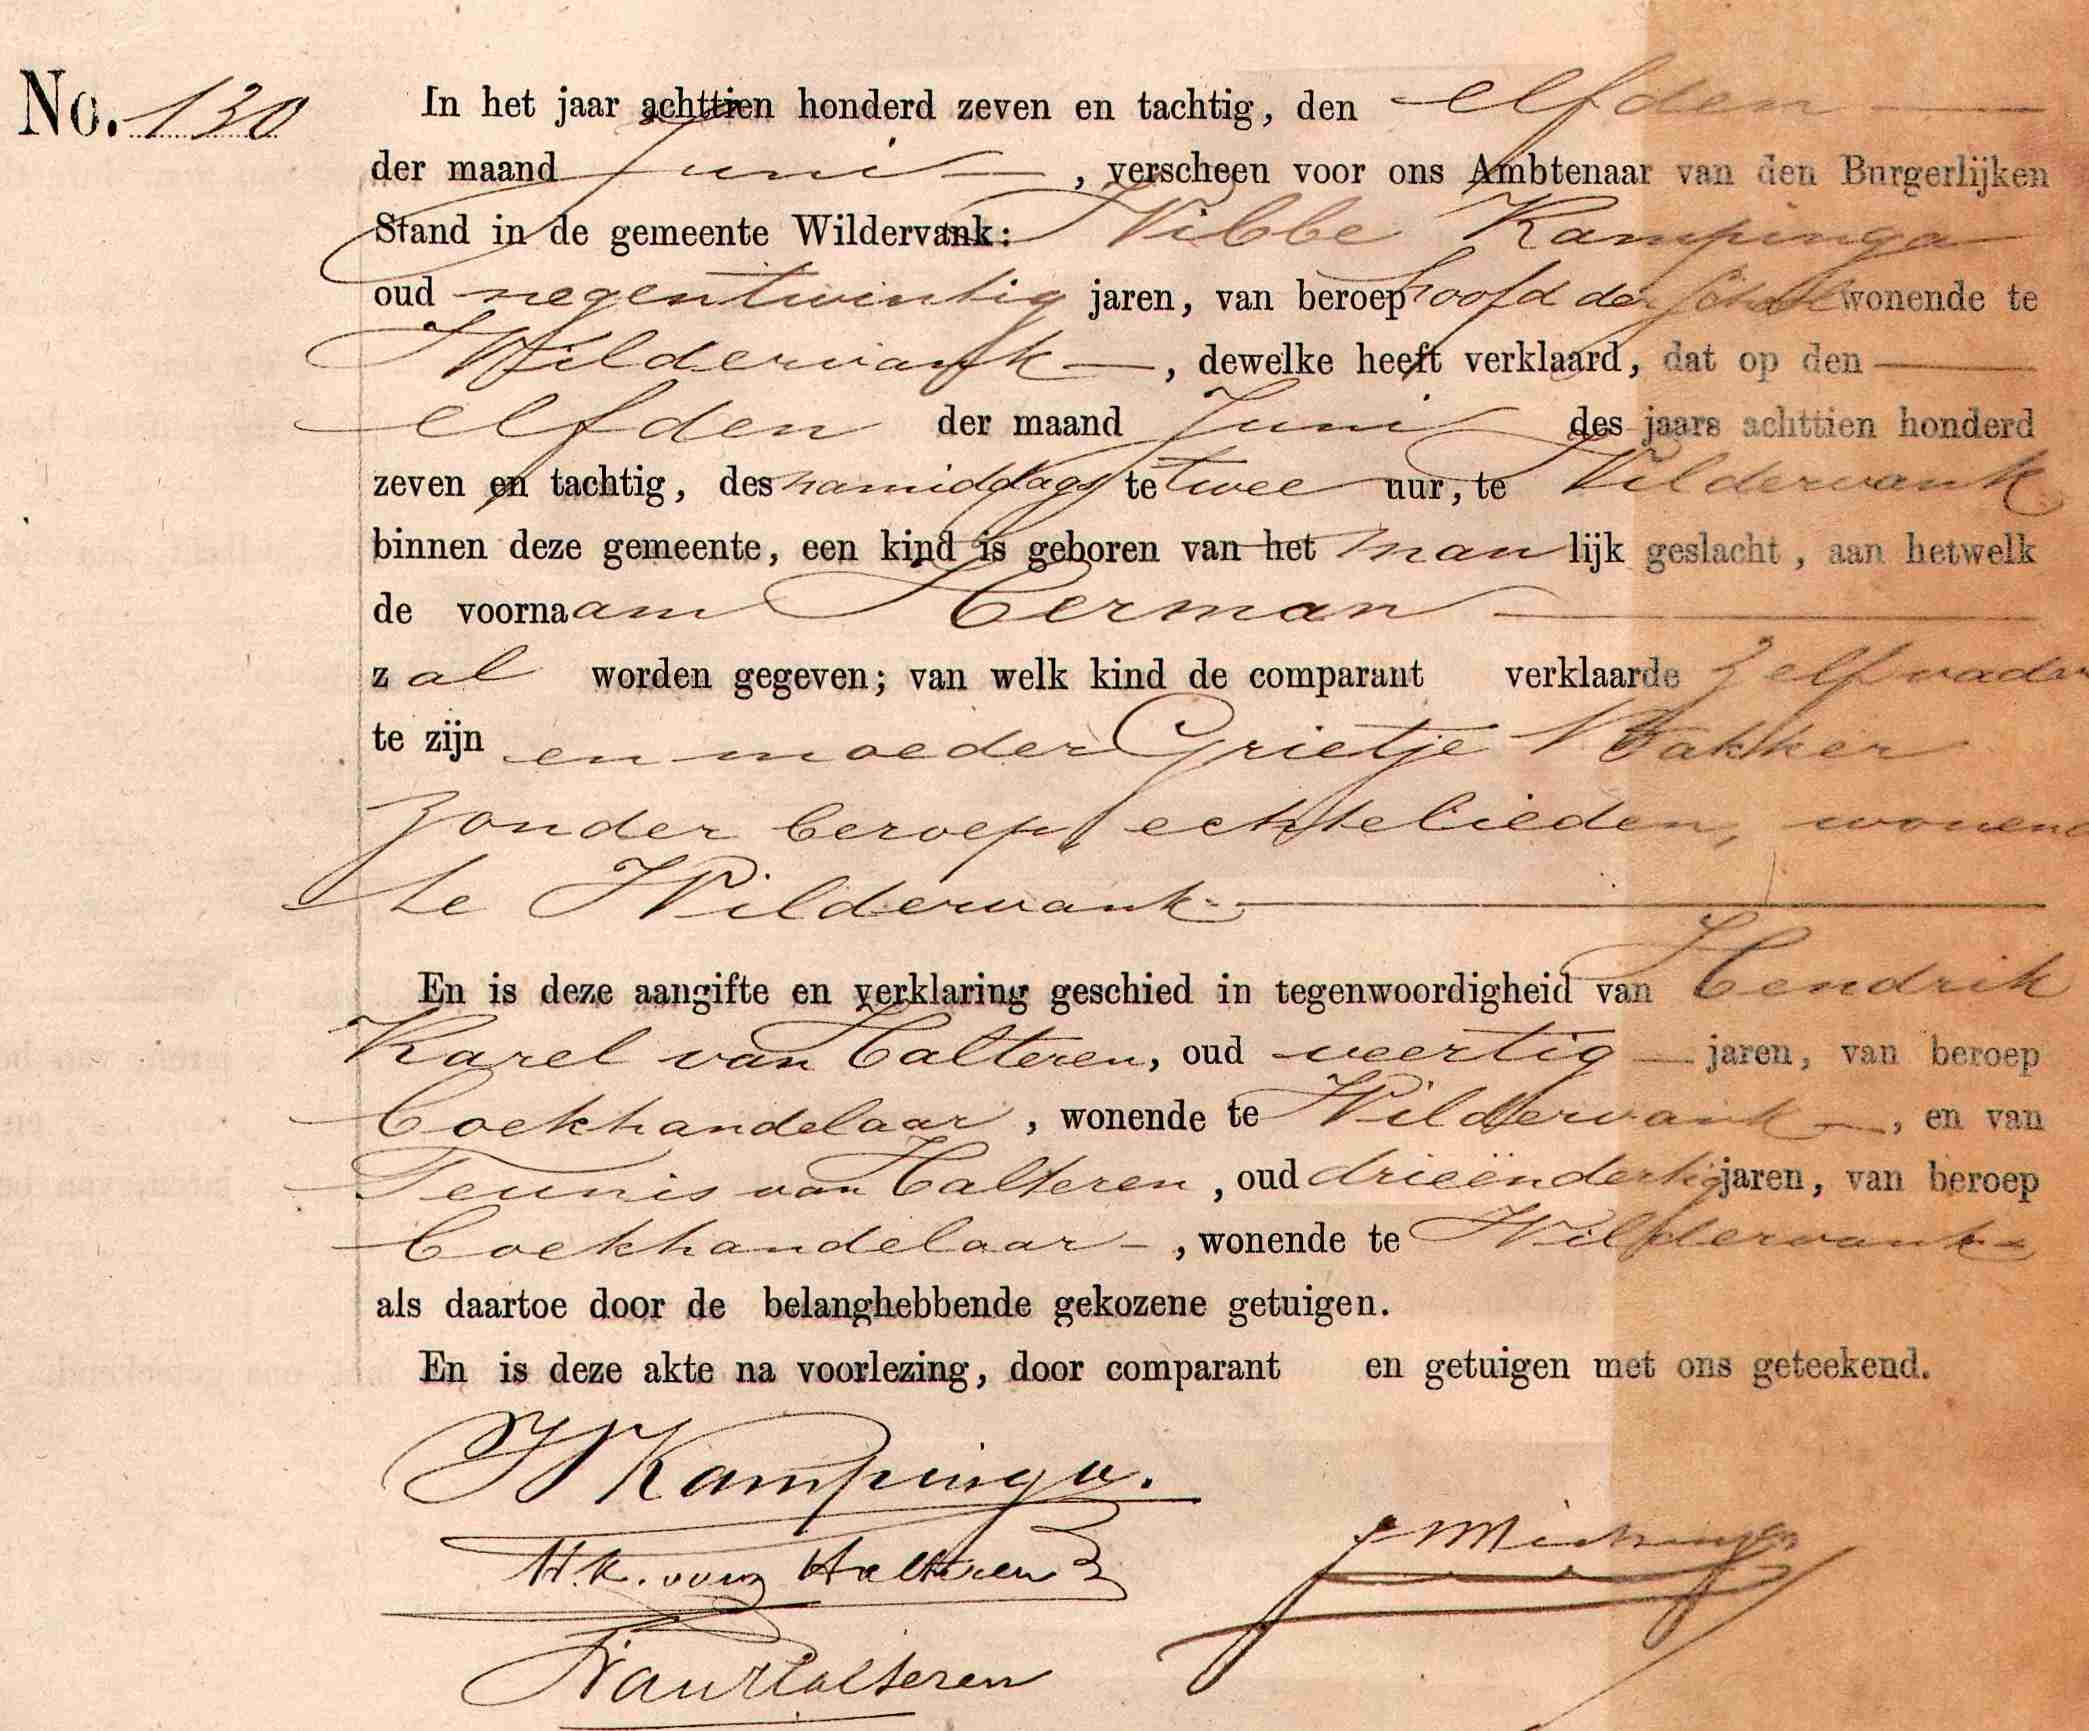 No. 130
In het jaar achttien honderd zeven en tachtig, den elfden
der maand Juni, verscheen voor ons Ambtenaar van den Burgerlijken
Stand in de gemeente Wildervank: Wibbe Kampinga
oud negentwintig jaren, van beroep hoofd der school wonende te
Wildervank, dewelke heeft verklaard, dat op den
elfden der maand Juni des jaars achttien honderd
zeven en tachtig, des namiddags te twee uur, te Wildervank
binnen deze gemeente, een kind is geboren van het manlijk geslacht, aan hetwelk
de voornaam Herman
zal worden gegeven; van welk kind de comparant verklaarde zelf vader
te zijn en moeder Grietje Bakker
zonder beroep, echtelieden, wonend
te Wildervank.
En is deze aangifte en verklaring geschied in tegenwoordigheid van Hendrik
Karel van Halteren, oud veertig jaren, van beroep
boekhandelaar, wonende te Wildervank, en van
Teunis van Halteren, oud drieëndertig jaren, van beroep
boekhandelaar, wonende te Wildervank
als daartoe door de belanghebbende gekozene getuigen.
En is deze akte na voorlezing, door comparant en getuigen met ons geteekend.
W Kampinga.
H.K. van Halteren
T van Halteren